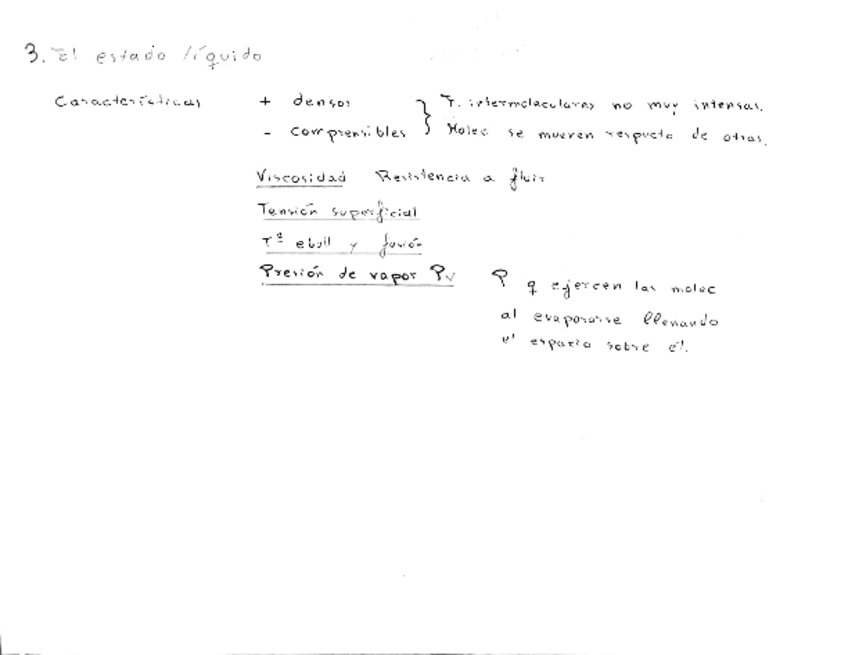 3. El estado líquido
Características + densos } F. intermoleculares no muy intensas.
- comprensibles Molec se mueven respecto de otras.
Viscosidad Resistencia a fluir
Tensión superficial
Tª ebull y fusión
Presión de vapor Pv P q ejercen las molec
al evaporarse llenando
el espacio sobre él.